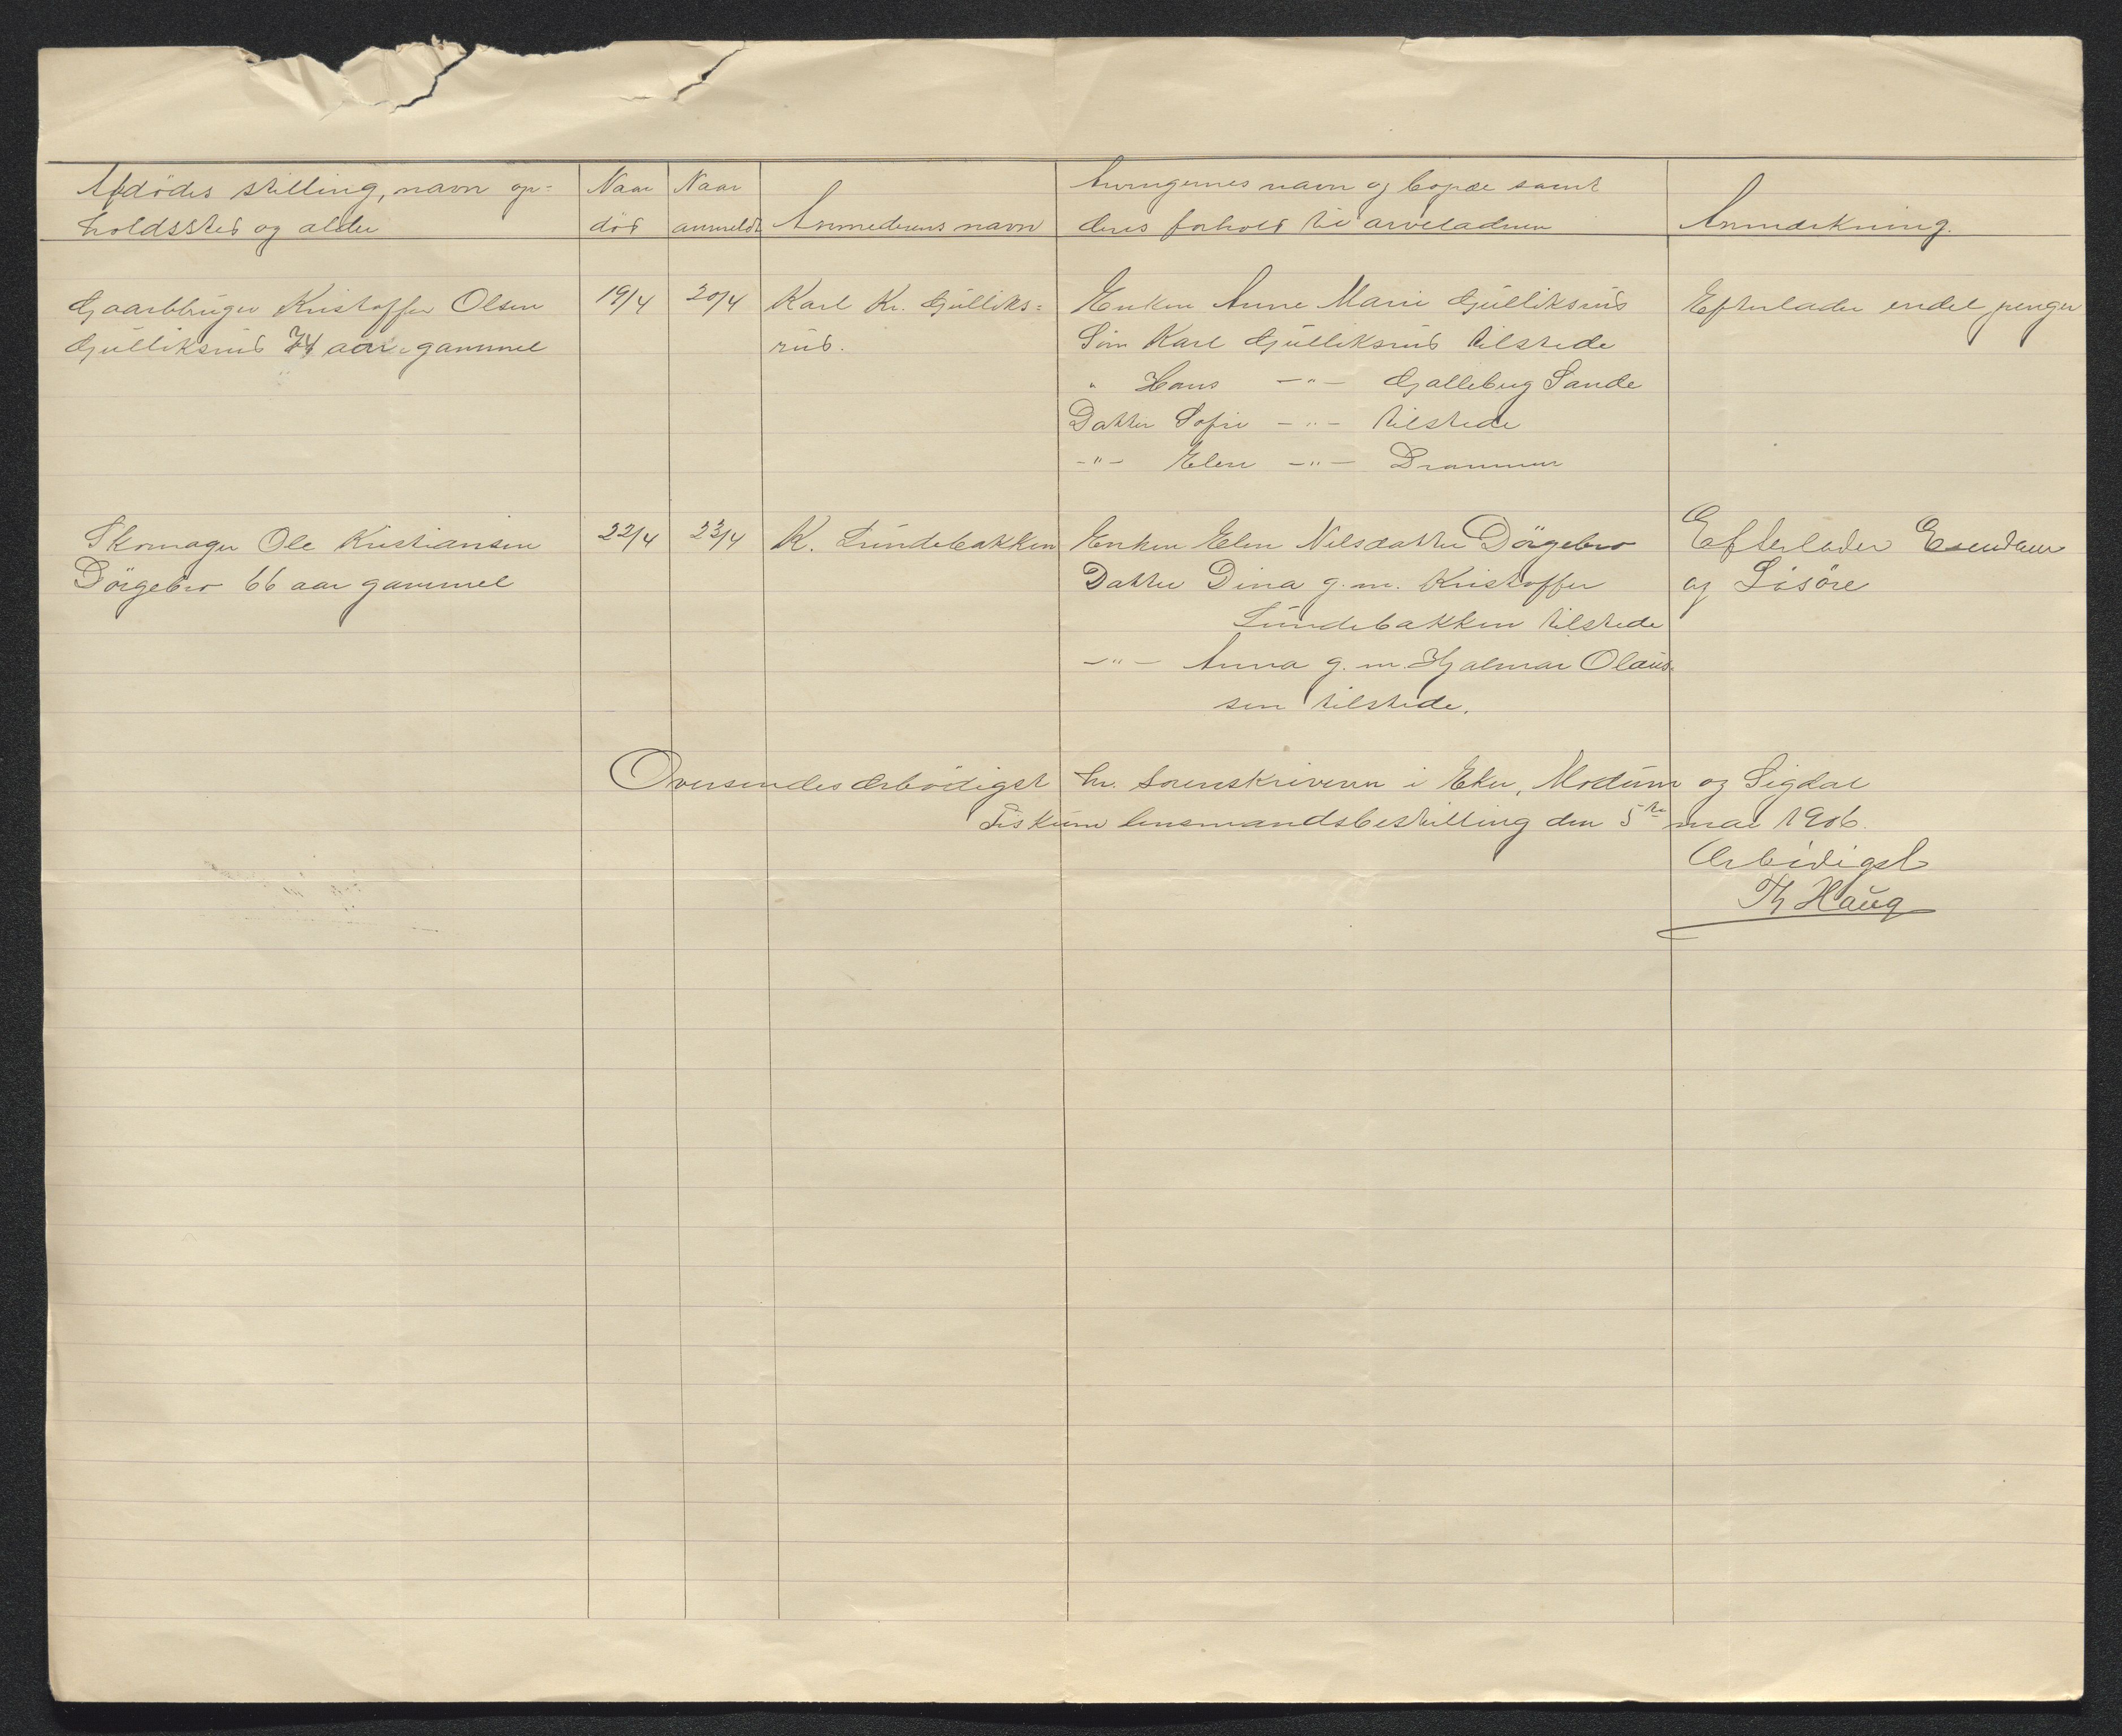 Afdødes stilling, navn op=
holdssted og alder
Naar
død
Naar
anmeldt
Anmederens navn
Arvingernes navn og bopæl samt
deres forhold til arveladeren
Anmerkning.
Gaardbruger Kristoffer Olsen
Gulliksrud 74 aar gammel
19/4
20/4
Karl Kr. Gulliks=
rud.
Enken Anne Marie Gulliksrud
Søn Karl Gulliksrud tilstede
" Hans —"— Gallebug Sande
Datter Sofie —"— tilstede
—"— Elen —"— Drammen
Efterlader endel penger
Skomager Ole Kristiansen
Dørgebro 66 aar gammel
22/4
23/4
K. Lundebakken
Enken Elen Nilsdatter Dørgebro
Datter Dina g. m. Kristoffer
Lundebakken tilstede
—"— Anna g. m. Hjalmar Olaus-
sen tilstede.
Efterlader Eiendom
og Løsøre
Oversendes ærbødigst hr. sorenskriveren i Eker, Modum og Sigdal
Fiskum lensmandsbestilling den 5te mai 1906.
Ærbødigst
Th Haug